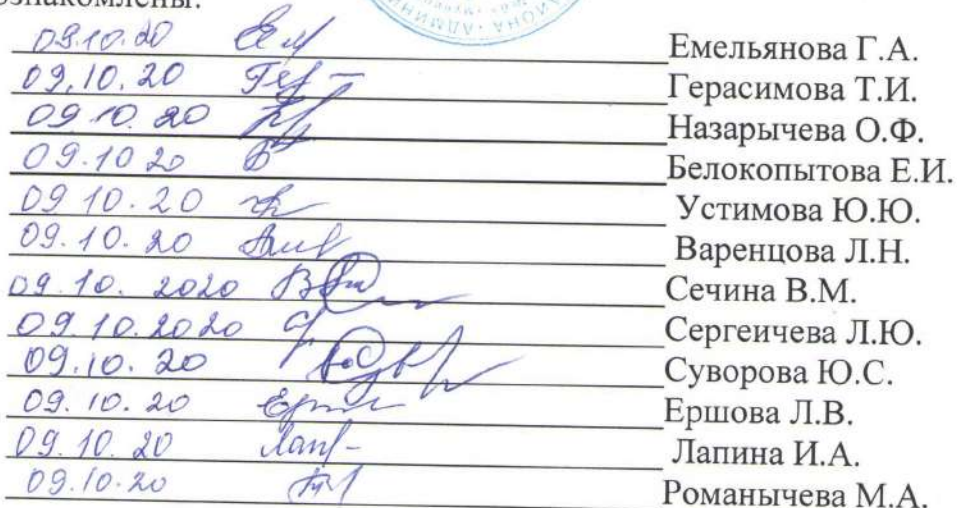 ознакомлены:
09.10.20 Емельянова Г.А.
09.10.20 Герасимова Т.И.
09.10.20 Назарычева О.Ф.
09.10.20 Белокопытова Е.И.
09.10.20 Устимова Ю.Ю.
09.10.20 Варенцова Л.Н.
09.10.2020 Сечина В.М.
09.10.2020 Сергеичева Л.Ю.
09.10.20 Суворова Ю.С.
09.10.20 Ершова Л.В.
09.10.20 Лапина И.А.
09.10.20 Романычева М.А.